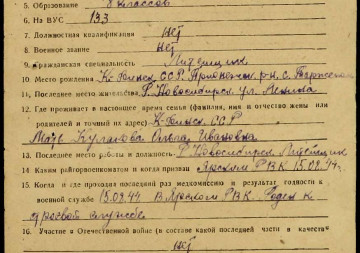 5. Образование 8 классов
6. На ВУС 133
7. Должностная квалификация нет
8. Военное звание нет
9. Гражданская специальность Литейщик
10. Место рождения К-Финск. ССР. р-н, с.
11. Последнее место жительства Г. Новосибирск ул. Ленина
12. Где проживает в настоящее время семья (фамилия, имя и отчество жены или
родителей и точный их адрес) К-Финск. ССР
Мать Кулакова Ольга Ивановна
13. Последнее место работы и должность Г. Новосибирск Литейщик
14. Каким райгорвоенкоматом и когда призван РВК 15.09.44 г.
15. Когда и где проходил последний раз медкомиссию и результат годности к
военной службе 15.09.44 В РВК. Годен к
строевой службе
16. Участие в Отечественной войне (в составе какой последней части в качестве
нет